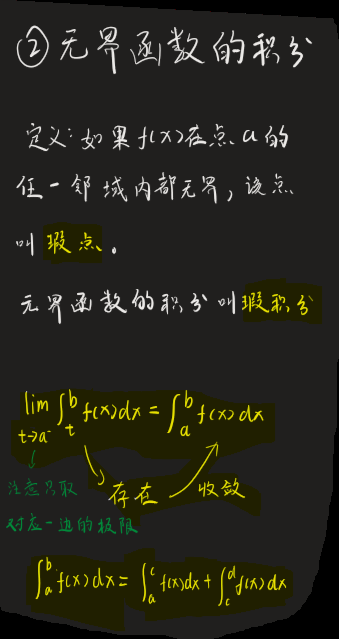 ②无界函数的积分
定义:如果f(x)在点a的
任一邻域内都无界,该点
叫瑕点。
无界函数的积分叫瑕积分
lim_{t→a⁻} ∫_t^b f(x)dx = ∫_a^b f(x)dx
注意只取
对应一边的极限
存在 收敛
∫_a^b f(x)dx = ∫_a^c f(x)dx + ∫_c^d f(x)dx